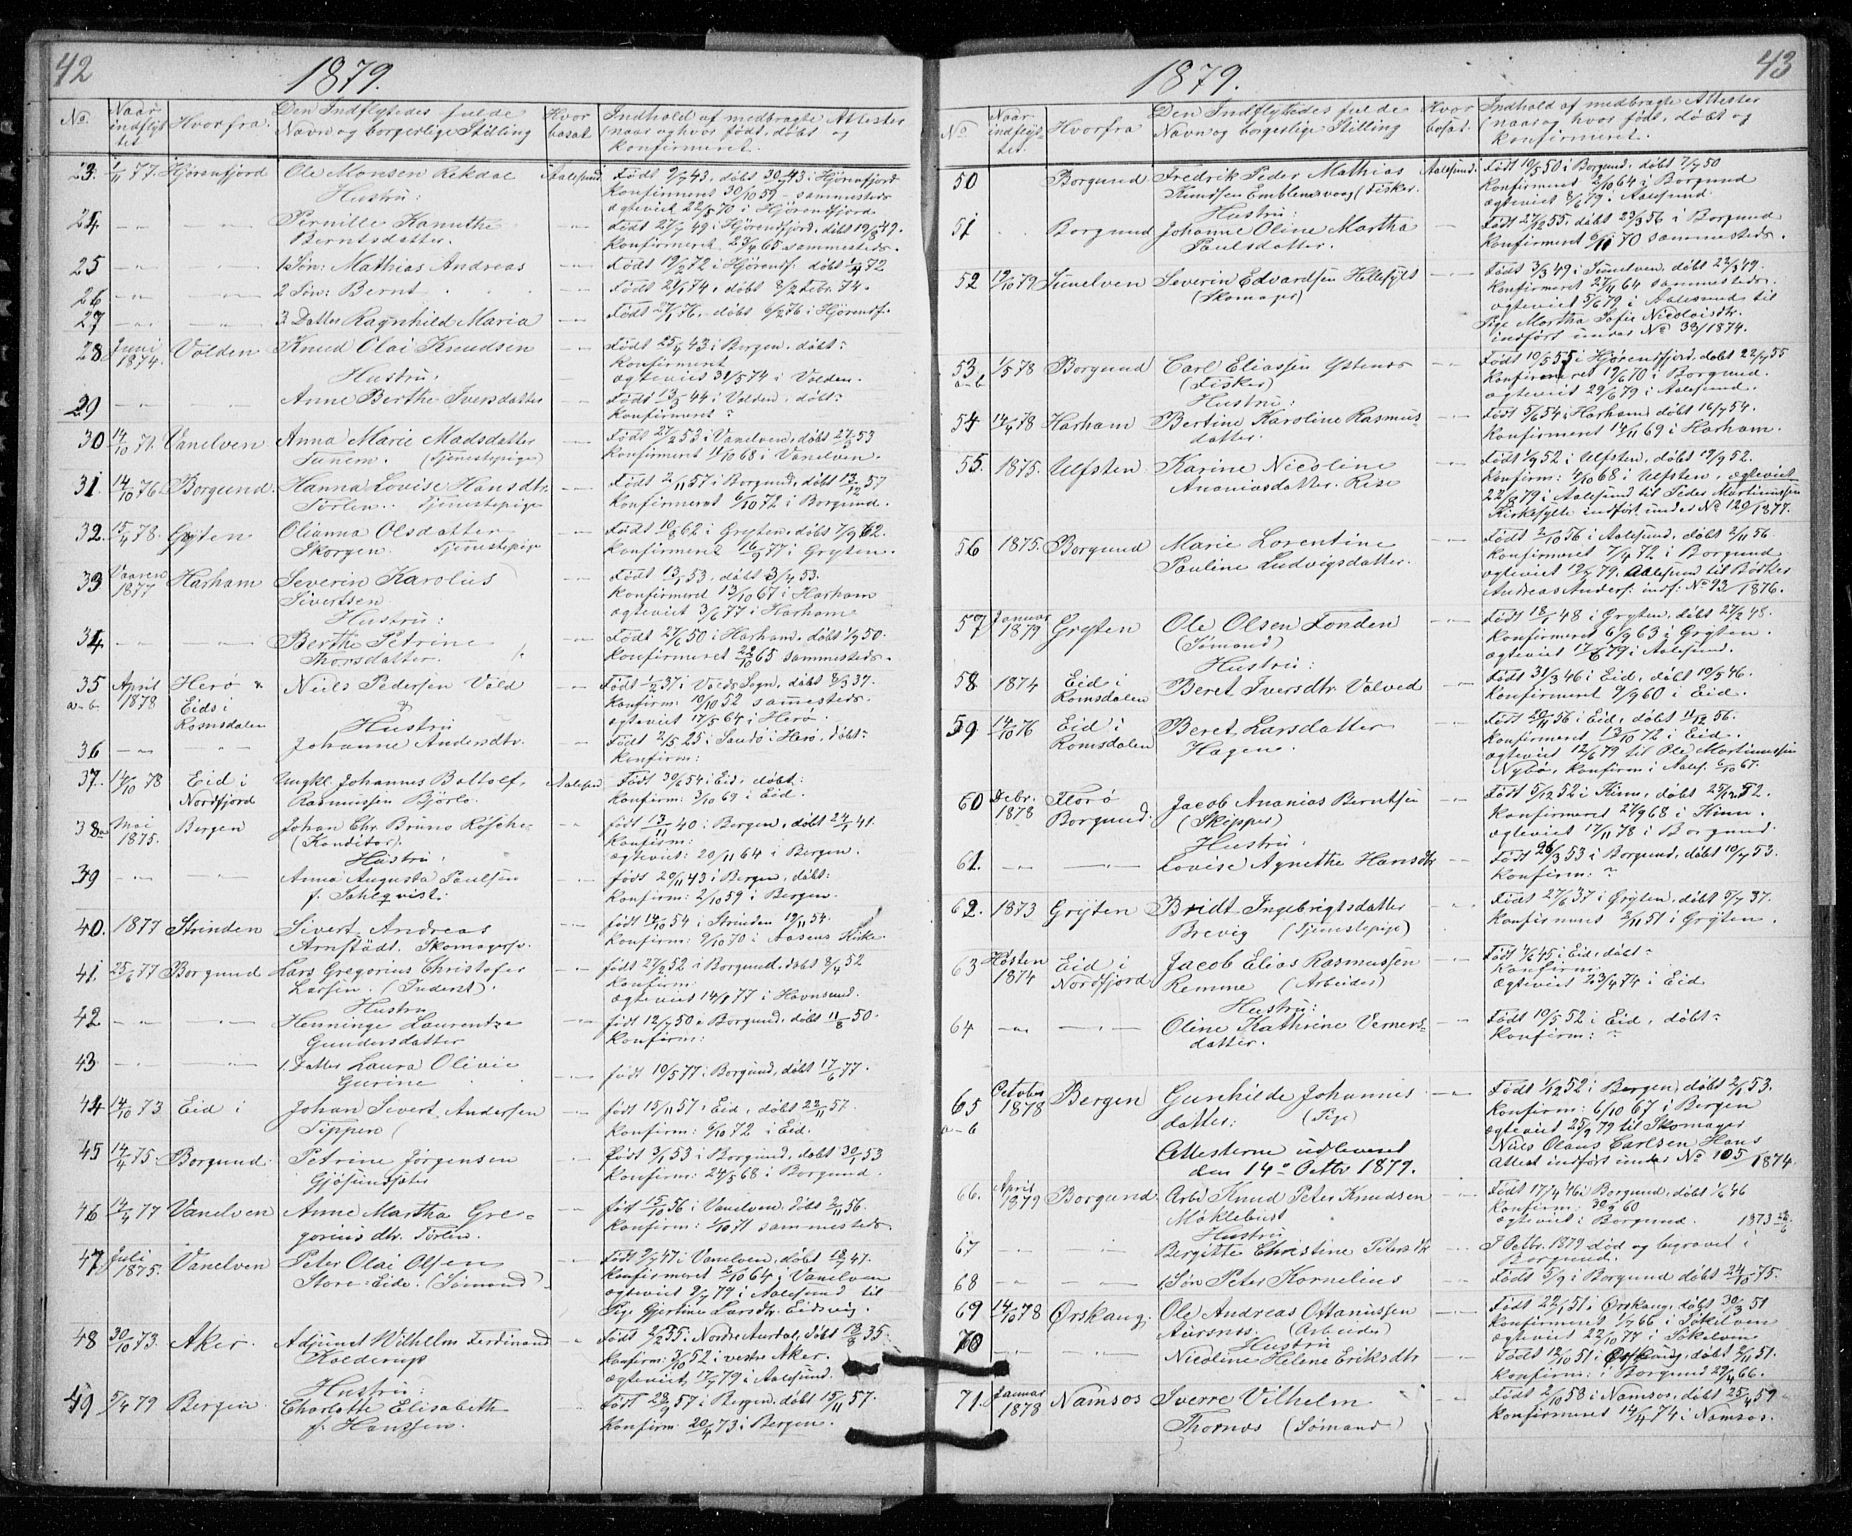 42
1879.
No
Naar indflyttet
Hvorfra.
Den Indflyttedes fulde Navn og borgerlige Stilling
Hvor bosat.
Indhold af medbragte Attester (naar og hvor født, døbt og konfirmeret.
23. 1/11 77. Hjørenfjord Ole Monsen Rekdal Aalesund Født 9/7 43, døbt 30/7 43 i Hjørenfjord
Konfirmeret 30/10 59 sammesteds
Hustru: ægteviet 22/5 70 i Hjørendfjord
24. Pernille Kanutha Født 27/7 49 i Hjørendfjord, døbt 19/8 49.
Berntsdatter. Konfirmeret 23/4 65 sammesteds.
25 1 Søn: Mathias Andreas Født 19/2 72 i Hjørendf. døbt 1/4 72
26 2 Søn: Bernt Født 23/1 74, døbt 8/2 Febr. 74.
27 3 Datter Ragnhild Maria Født 27/1 76, døbt 6/2 76 i Hjørendf.
28 Juni 1874. Volden Knud Olai Knudsen Født 25/4 43 i Bergen, døbt:
Konfirmeret
Hustru: ægteviet 31/5 74 i Volden.
29 Anne Berthe Iversdatter Født 13/3 44 i Volden, døbt:
Konfirmeret:
30 14/10 71. Vanelven Anna Marie Madsdatter Født 27/2 53 i Vanelven, døbt 27/3 53
(Tjenestepige) Konfirmeret 11/10 68 i Vanelven.
31. 14/10 76 Borgund. Hanna Lovise Hansdtr Født 2/11 57 i Borgund, døbt 13/12 57
Tørlen. Tjenestepige Konfirmeret 6/10 72 i Borgund.
32. 15/4 78. Gryten Olianna Olsdatter Født 10/8 62 i Gryten, døbt 7/9 62.
Skorgen. Tjenestepige Konfirmeret 16/9 77 i Gryten.
33 Vaaren 1877 Harham Severin Karolius Født 13/1 53, døbt 3/4 53.
Sivertsen Konfirmeret 13/10 67 i Harham
Hustru: ægteviet 3/6 77 i Harham
34 Berthe Petrine Født 27/6 50 i Harham, døbt 1/9 50.
Thorsdatter. Konfirmeret 22/10 65 sammesteds.
35 a-b April 1878 Herø & Eids i Romsdalen Niels Pedersen Vold Født 1/2 37 i Volds Sogn, døbt 8/3 37.
Konfirm: 10/10 52 sammesteds.
Hustru ægteviet 17/5 64 i Herø.
36 Johanne Andersdtr. Født 2/5 25 i Sandø i Herø, døbt:
Konfirm:
37. 14/10 78 Eid i Nordfjord Ungkl. Johannes Bottolf Aalesund Født 30/6 54 i Eid, døbt:
Rasmussen Bjørlo. Konfirm: 3/10 69 i Eid.
38a Mai 1875. Bergen Johan Chr. Bruno født 13/11 40 i Bergen, døbt 24/1 41.
(Konditor). Konfirm:
Hustru: ægteviet: 20/11 64 i Bergen.
39 Anna Augusta Paulsen født 29/11 43 i Bergen, døbt:
f. Konfirm: 2/10 59 i Bergen.
40. 1877 Strinden Sivert Andreas født 14/10 54 i Strinden 19/11 54.
Arnstødt. Skomagersv. Konfirm: 9/10 70 i Aasens Kirke.
41. 25/6 77 Borgund Lars Gregorius Christofer født 27/2 52 i Borgund, døbt 8/4 52
Larsen. (Inderst). Konfirm:
Hustru ægteviet 14/1 77 i Havnsund.
42 Henninge Laurentze født 12/7 50 i Borgund, døbt 11/8 50.
Gundersdatter Konfirm:
43. 1. Datter Laura Olivie født 10/5 77 i Borgund, døbt 17/6 77.
Gurine
44 14/10 73 Eid i Johan Sivert Andersen født 15/11 57 i Eid, døbt 22/11 57
Tippen ( Konfirm: 6/10 72 i Eid.
45 14/4 75 Borgund. Petrine Jørgensen født 3/1 53 i Borgund, døbt 30/1 53
Gjøsundsæter Konfirm: 24/5 68 i Borgund
46 14/4 77 Vanelven Anne Martha Gre- født 15/10 56 i Vanelven, døbt 2/11 56.
goriusdtr. Tørlen. Konfirm: 1/10 71 sammesteds
47 Juli 1875. Vanelven Peter Olai Olsen Født 9/7 47 i Vanelven, døbt 18/7 47.
Store-Eide. (Sømand) Konfirmeret 2/10 64 i Vanelven
ægteviet 9/7 79 i Aalesund til
Pige Gjertine Larsdtr. Eidsvig.
48 30/10 73. Aker. Adjunct Wilhelm Ferdinand Født 2/2 35. Nordre Aurdal, døbt 12/3 35.
Kolderup Konfirm: 3/10 52 i vestre Aker.
ægteviet 17/7 79 i Aalesund.
Hustru:
49 5/7 79 Bergen Charlotte Elisabeth Født 28/9 57 i Bergen, døbt 15/11 57.
f. Hanssen. Konfirm 20/4 73 i Bergen.
43
1879.
No
Naar indflyttet.
Hvorfra
Den Indflyttedes fulde Navn og borgerlige Stilling
Hvor bosat.
Indhold af medbragte Attester (naar og hvor født, døbt og konfirmeret.
50 Borgund Fredrik Peder Mathias Aalesund. Født 10/5 50 i Borgund, døbt 7/7 50
Knudsen Emblemsvaag (Fisker. Konfirmeret 2/10 64 i Borgund
Hustru: ægteviet 8/6 79 i Aalesund
51 Borgund Johanne Oline Martha Født 27/12 55. døbt 23/3 56 i Borgund
Paulsdatter. Konfirmeret 6/11 70 sammesteds.
52 19/10 79 Sunelven Severin Edvardsen Hellesylt Født 3/3 49 i Sunelven, døbt 22/3 49.
(Skomager) Konfirmeret 27/11 64 sammesteds.
ægteviet 5/6 79 i Aalesund til
Pige Martha Sofie Nicolaisdtr.
indført under No 39/1874.
53 a-b 1/5 78 Borgund Carl Eliassen Ystenes Født 10/5 55 i Hjørendfjord, døbt 22/7 55
(Fisker) Konfirmeret 19/6 70 i Borgund.
Hustru: ægteviet 29/6 79 i Aalesund.
54 14/4 78 Harham Bertine Karoline Rasmus- Født 5/6 54 i Harham, døbt 16/7 54.
datter. Konfirmeret 14/11 69 i Harham.
55. 1875. Ulfsten Karine Nicoline Født 1/9 52 i Ulfsten, døbt 19/9 52.
Ananiasdatter. Rise Konfirm: 4/10 68 i Ulfsten, ægteviet
22/8 79 i Aalesund til Peder Martinussen
indført under No 120/1877.
56 1875. Borgund Marie Lorentine Født 2/10 56 i Aalesund, døbt 2/11 56
Pauline Ludvigsdatter. Konfirmeret 7/4 72 i Borgund
ægteviet 19/7 79. Aalesund til Bødker
Andreas Anders: indf: No 93/1876.
57 Januar 1879 Gryten Ole Olsen Fonden Født 18/1 48 i Gryten, døbt 27/2 48.
(Sømand) Konfirmeret 6/9 63 i Gryten.
Hustru: ægteviet 17/8 79 i Aalesund.
58 1874 Eid i Romsdalen Beret Iversdtr. Volved Født 31/3 46 i Eid, døbt 10/5 46.
Konfirmeret 9/9 60 i Eid.
59. 14/10 76 Eid i Romsdalen Beret Larsdatter Født 20/11 56 i Eid, døbt 11/12 56.
Hagen. Konfirmeret 13/10 72 i Eid.
ægteviet 12/6 79 til Ole Martinussen
Nybø, konfirm i Aales. 6/10 67.
60 Febr. 1878 Florø Borgund Jacob Ananias Berntsen Født 5/12 52 i Kinn, døbt 25/12 52.
(Skipper) Konfirmeret 27/9 68 i Kinn.
Hustru: ægteviet 17/11 78 i Borgund.
61. Lovise Agnethe Hansdtr Født 26/3 53 i Borgund, døbt 10/7 53.
Konfirm: ?
62. 1873 Gryten Bridt Ingebrigtsdatter Født 27/6 37 i Gryten, døbt 5/7 37.
Brevig (Tjenestepige) Konfirmeret 2/11 51 i Gryten.
63 Høsten 1874 Eid i Nordfjord Jacob Elias Rasmussen Født 4/6 45 i Eid, døbt:
Remme (Arbeider) Konfirm:
Hustru: ægteviet 23/4 74 i Eid
64 Oline Kathrine Verners- Født 10/5 52 i Eid, døbt:
datter. Konfirm: ?
65 a-b October 1878 Bergen Gunhilde Johannis Født 1/12 52 i Bergen, døbt 2/1 53.
datter: (Pige) Konfirm: 6/10 67 i Bergen
Attesterne udleveret ægteviet 25/9 79 til Skomager
den 14de Octbr 1879. Niels Olaus Carlsen Hans
Attest indført under No 105/1874.
66. April 1879 Borgund. Arb. Knud Peter Knudsen Født 17/4 46 i Borgund, døbt 1/6 46
Møklebust Konfirm: 30/9 60
Hustru ægteviet i Borgund. 1873
67 Bergitte Christine Petersdtr I Octbr. 1879 død og begravet i
Borgund.
68 1. Søn Peter Kornelius Født 5/9 i Borgund døbt 24/10 75.
69 14/10 78 Ørskaug. Ole Andreas Ottanussen Født 29/1 51 i Ørskaug, døbt 30/3 51
Aursnes. (Arbeider) Konfirmeret 1/7 66 i Søkelven
Hustru ægteviet 22/10 77 i Søkelven
70 Nicoline Helene Eriksdtr Født 12/10 51 i Ørskaug, døbt 2/11 51.
Konfirm: i Borgund 29/4 66.
71. Januar 1878 Namsos Sverre Vilhelm Født 2/10 58 i Namsos, døbt 25/4 59
Thornes (Sømand) Konfirmeret 14/4 74 i Namsos.